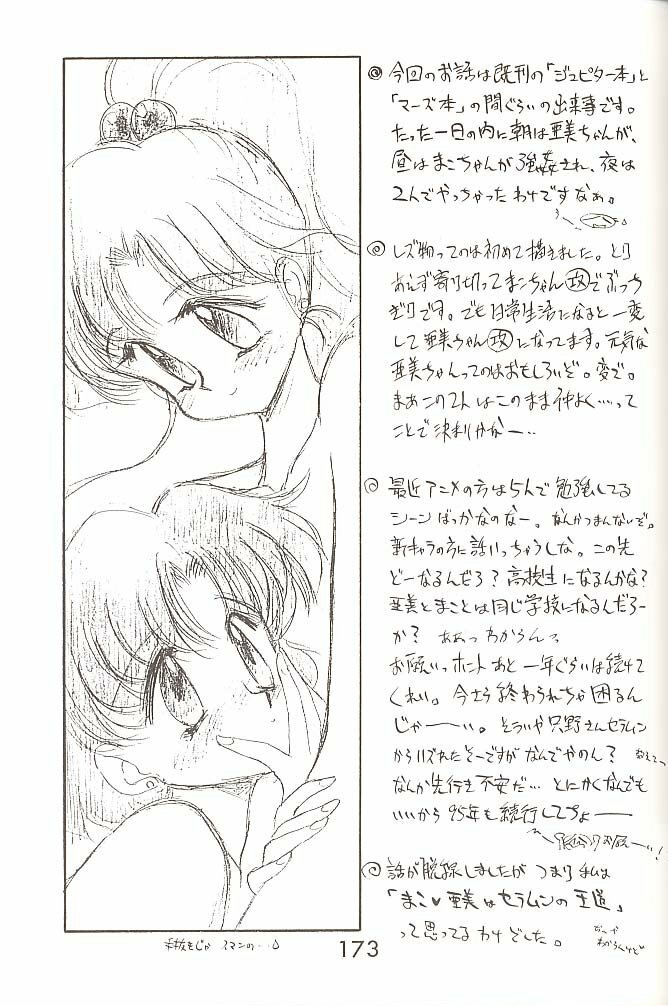 ◎ 今回のお話は既刊の「ジュピター本」と
「マーズ本」の間ぐらいの出来事です。
たった一日の内に朝は亜美ちゃんが、
昼はまこちゃんが強姦され、夜は
2人でやっちゃったわけですなぁ。
◎ レズ物ってのは初めて描きました。とり
あえず寄り切ってまこちゃん攻でぶっち
ぎりです。でも日常生活になると一変
して亜美ちゃん攻になってます。元気な
亜美ちゃんってのはおもしろいぞ。変で。
まあこの2人はこのまま仲よく…って
ことで決まりかなー…
◎ 最近アニメの方は5人で勉強してる
シーンばっかなのなー。なんかつまんないぞ。
新キャラの方に話いっちゃうしな。この先
どーなるんだろ?高校生になるんかな?
亜美とまことは同じ学校になるんだろー
か? ああっわからんっ
お願いっホントあと一年ぐらいは続けて
くれい。今さら終わられちゃ困るん
じゃーーい。そういや只野さんセラムン
からハズれたそーですがなんでやのん?
なんか先行き不安だ… とにかくなんでも
いいから95年も続行してちょーー
◎ 話が脱線しましたがつまり私は
「まこ♥亜美はセラムンの王道」
って思ってるわけでした。
173